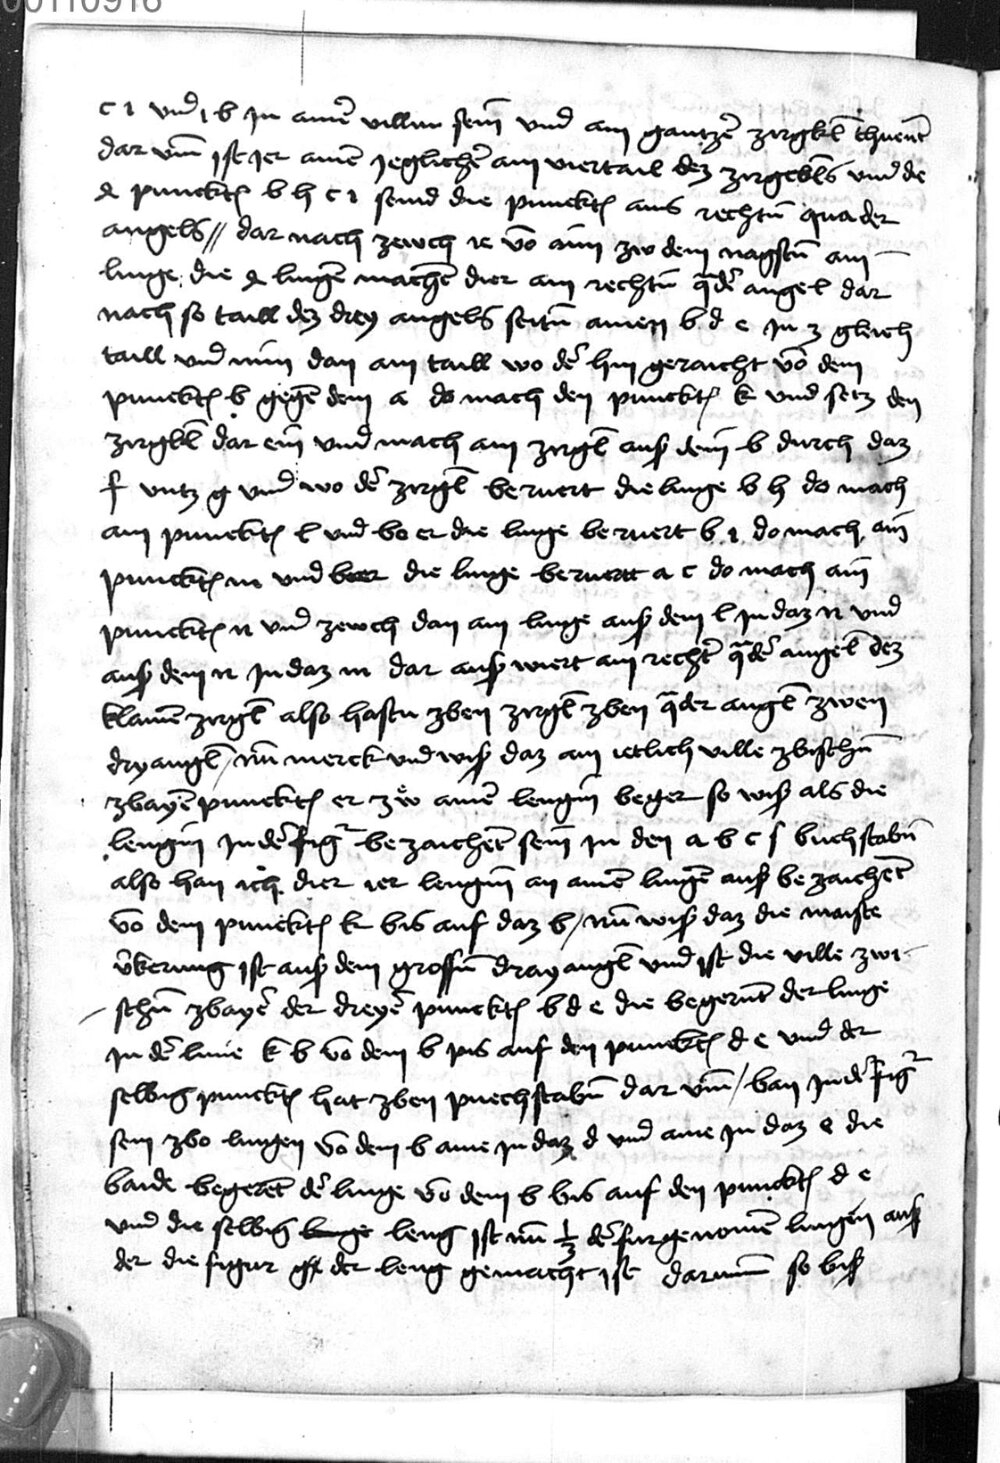 00110916
c i vnd i b in ainer villun sein vnd ain gantzer zirgkl thuent
dar vm ist ier ainen yeglicher ain viertail dez zirgkls vnd de
4 punckten b h c i seind die punckten ains rechtn quader
angels // dar nach zewch ie von aim zw dem nagstn ain
linge die 4 lingen machen dier ain rechtn qader angel dar
nach so taill dez drey angels seitn ainen b d e in 3 gleich
taill vnd nim dan ain taill wo der hin geraicht von dem
punckten b gegen dem a do mach den punckten k vnd setz den
zirgkl dar ein vnd mach ain zirgl aus dem b durch daz
f vntz g vnd wo der zirgl beruert die linge b h do mach
ain punckten l vnd bo er die linge beruert b i do mach ain
punckten m vnd bo er die linge beruertt a c do mach ain
punckten n vnd zewch dan ain linge aus dem l in daz n vnd
aus dem n in daz m dar aus wiert ain rechter qader angel dez
klainen zirgl also hastu zben zirgl zben qader angl zwen
dryangl / nun merck vnd wis daz ain ietlich ville zbischn
zbayen punckten er zw ainer lengin beger so wis als die
lengin in der figur bezaichent sein in den a b c s buchstabn
also han ich dier ier lengin an ainer lingen aus bezaichent
von dem punckten k bis auf daz b / nun wis daz die maiste
vkerung ist aus dem grossn drayangl vnd ist die ville zwi-
schn zbayer der dreyer punckten b d e die begernt der linge
in der linie k b von dem b pis auf den punckten d e vnd der
selbig punckten hat zben puechstabn dar vm / ban in der figur
sein zbo lingen von dem b aine in daz d vnd aine in daz e die
baide begerent der linge von dem b bis auf den punckten d e
vnd die selbig leng ist nun 1/3 der furgenomen lingen aus
der die figur der leng gemacht ist darumm so bis